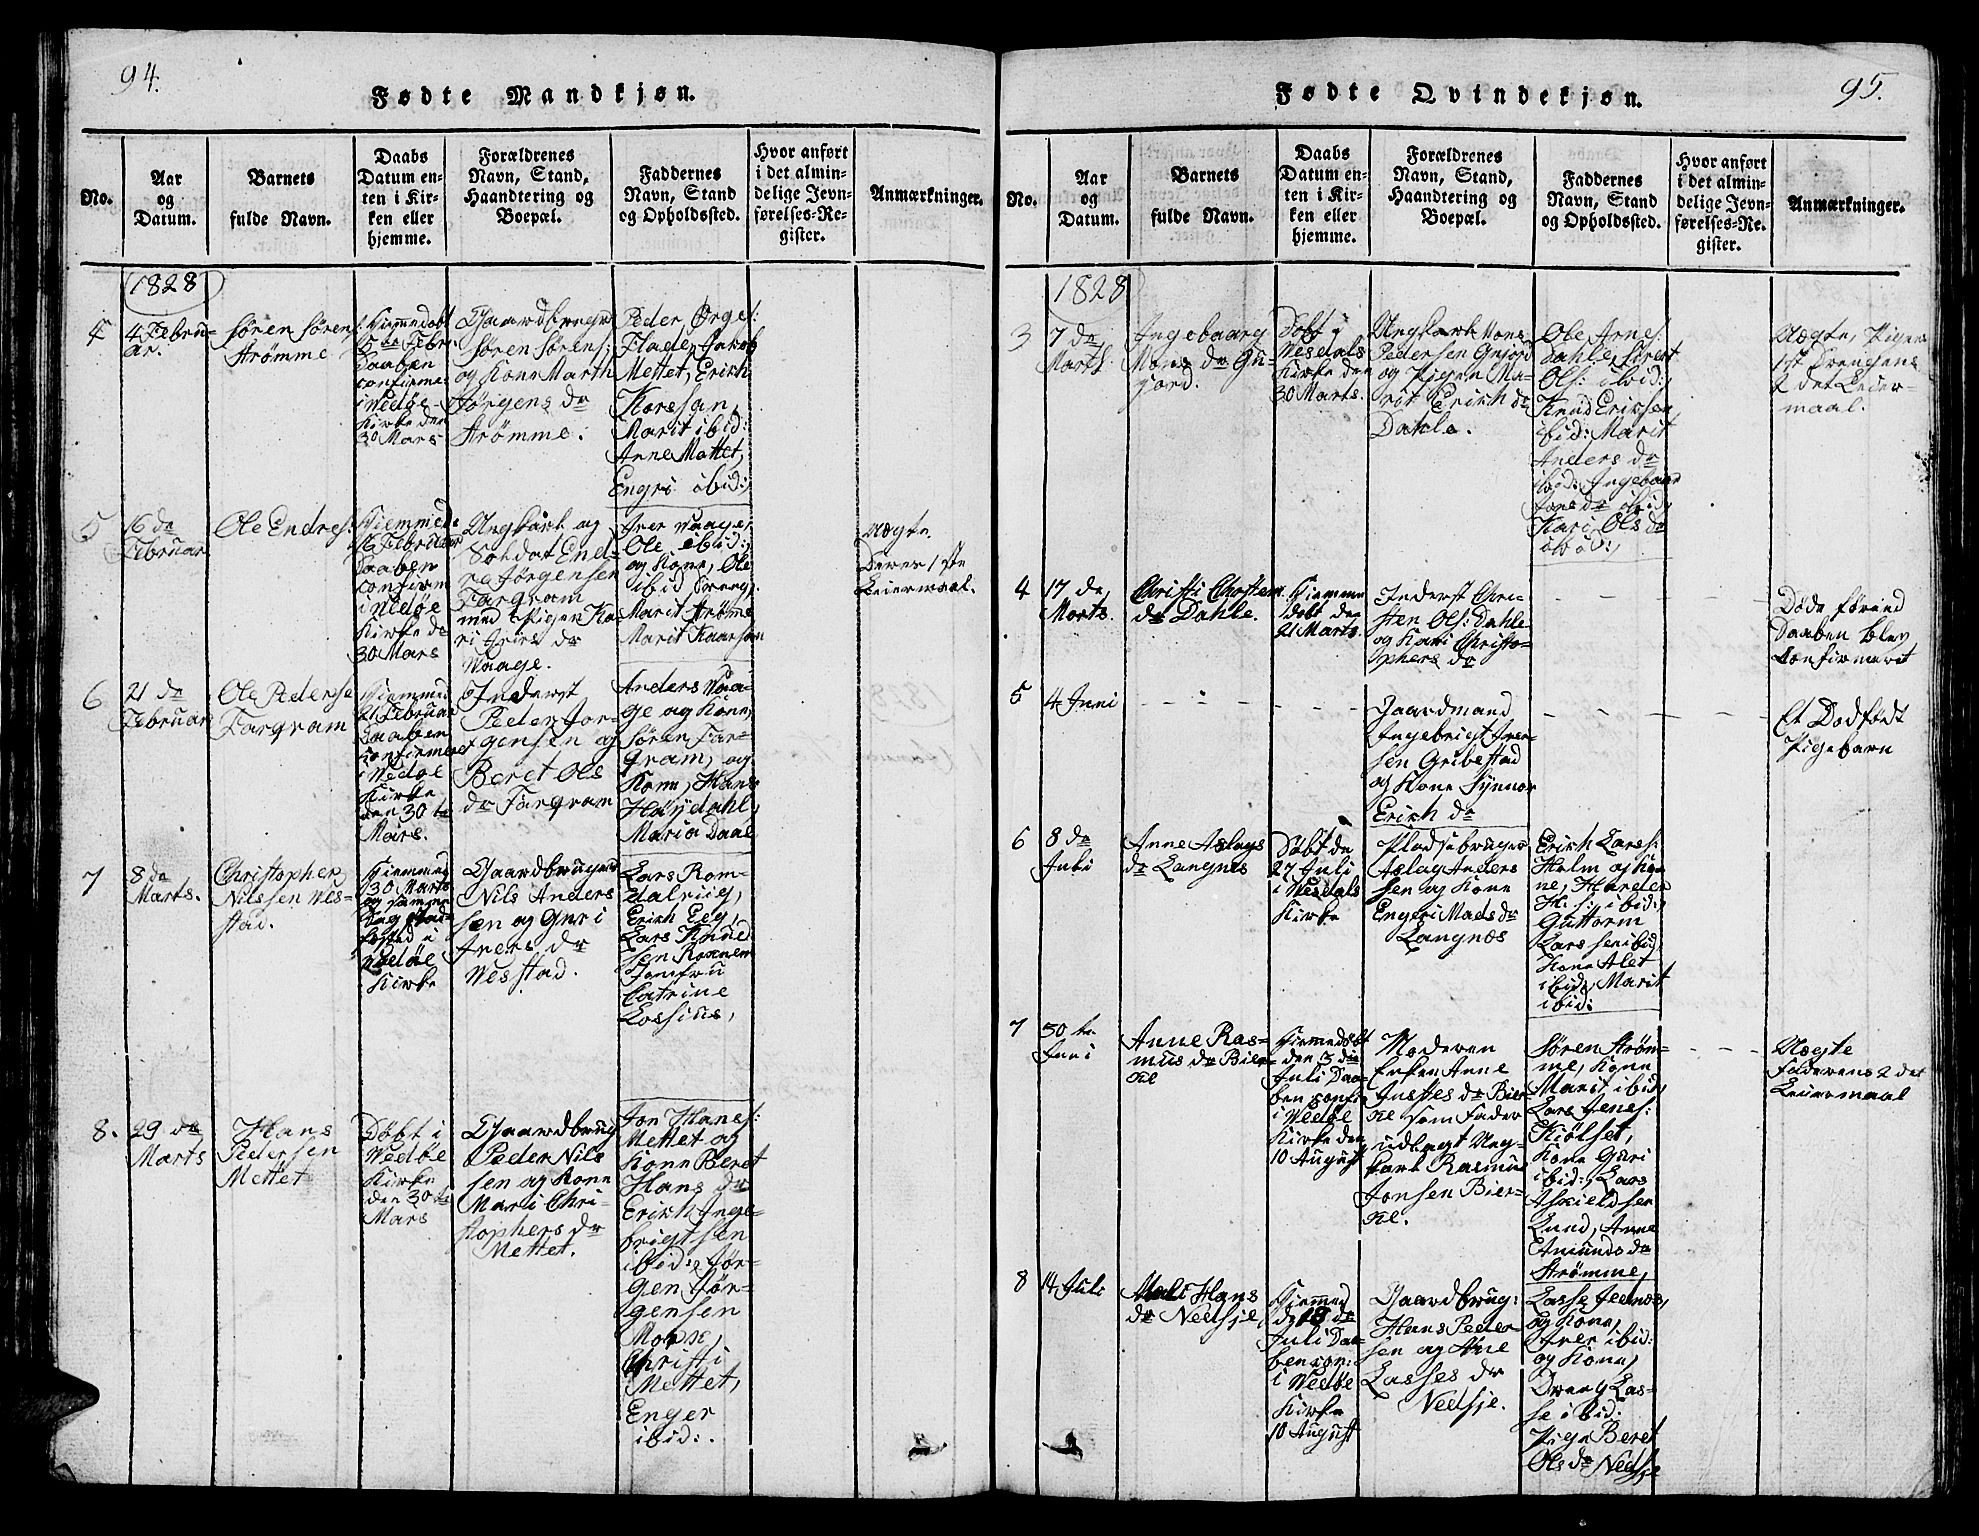 94.
Fødte Mandkjøn.
No.
Aar
og
Datum.
Barnets
fulde Navn.
Daabs
Datum en-
ten i Kir-
ken eller
hjemme.
Forældrenes
Navn, Stand,
Haandtering og
Boepæl.
Faddernes
Navn, Stand
og Opholdssted.
Hvor anført
i det almin-
delige Jevn-
førelses-Re-
gister.
Anmærkninger.
1828
4
4 Febru-
ar.
Søren Sørens:
Strømme
Hiemmedøbt
5te Febr:
Daaben
confirme:
i Vedøe
Kirke den
30 Mars
Gaardbruger
Søren Sørens:
og Kone Marth
Jörgens dr
Strømme.
Peder Örges:
Flade, Jakob
Mettet, Erich
Korssan,
Marit ibid:
Anne Mettet,
Engri ibid:,
5
16 de
Februar
Ole Endres:
Hiemmed:
16 Februar
Daaben
confirm
i Vedøe
Kirke de
30 Mars
Ungkarl og
Soldat End-
re Jörgensen
Fargram
med Pigen Ka
ri Ivers dr
Vaage.
Iver Vaage,
Ole ibid:,
og Kone, Ole
ibid Dreng,
Marit Strømme
Marit Kaarsan
Uægte.
Deres 1ste
Leiermaal.
6
21 de
Februar
Ole Pederse
Fargram
Hiemmed
21 Februar
Daaben
confirmeret
i Vedøe
Kirke
den 30te
Mars.
Inderst
Peder Jor-
gensen og
Beret Ols
dr Fargram
Anders Vaa-
ge og Kone,
Søren Far-
gram, og
Kone, Hans
Höyedahl,
Maria Daae
7
8 de
Marts.
Christopher
Nilssen Ves-
stad.
Hiemmed
30 Marts
og samme
Dag stad-
fæsted i
Vedøe
Kirke
Gaardbruger
Nils Anders
sen og Guri
Ivers dr
Vesstad.
Lars Rom-
dalviig,
Erich Eeg,
Lars Knud
sen Roxnem
Jomfru
Catrine
Lossius,
8.
29 de
Marts
Hans
Pedersen
Mettet
Döbt i
Vedøe
Kirke
den 30te
Mars
Gaardbrug
Peder Nils
sen og Kone
Mari Chri-
stophers dr
Mettet.
Jon Hanes:
Mettet og
Kone Beret
Hans dr
Erich Inge-
brigtsen
ibid:, Jör-
gen Jör-
gensen
Moxn,
Christi
Mettet,
Enger
ibid:.
95.
Fødte Qvindekjøn.
No.
Aar
og
Datum.
Barnets
fulde Navn.
Daabs
Datum en-
ten i Kir-
ken eller
hjemme.
Forældrenes
Navn, Stand,
Haandtering og
Boepæl.
Faddernes
Navn, Stand
og Opholdssted.
Hvor anført
i det almin-
delige Jevn-
førelses-Re-
gister.
Anmærkninger.
1828
3
7 de
Marts.
Ingebaarg
Mons dr Gu-
jord.
Döbt i
Vesdals
Kirke den
30 Marts.
Ungkarl Mons
Pedersen Gujord
og Pigen Ma-
rit Erich dr
Dahle.
Ole Arnes:
Dahle, Sivert
Ols: ibid:,
Knud Eriksen
ibid: Marit
Anders dr
ibid:, Ingebaar
Jons dr ibid,
Kari Ols dr
ibid:,
Uægte, Pigens
1st Drengens
2 det Leier-
maal.
4
17 de
Morts.
Christi Chosten
dr Dahle.
Hiemme
döbt den
21 Marts
Inderst Chri-
sten Ols: Dahle
og Kari Christo-
phers dr
Døde förend
Daaben blev
Confirmerit
5
4 Juni
Gaardmand
Ingebrigt Iver-
sen Gribestad
og Kone Synnev
Erich dr
Et Dødfödt
Pigebarn
6
8 de
Juli
Anne Aslags
dr Langnes
Döbt de
27 Juli
i Vesdals
Kirke
Pladsebruger
Aslag Anders
sen og Kone
Engeri Mads dr
Langnæs
Erich Larss:
Holm og Ko-
ne,
ibid:,
Guttorm
Larssen ibid,
Kone Alet
ibid:, Marit
ibid:
7
30 te
Juni
Anne Ras-
mus dr Bier-
ke
Hiemmedøbt
den 3 die
Juli Daa-
ben confir
i Vedøe
Kirke den
10 August
Moderen
Enken Anne
Justses dr Bier-
ke som Fader
udlagt Ung-
karl Rasmus
Jonsen Bier-
ke.
Søren Strøm-
me, Kone
Marit ibid,
Lars Jenes:
Kiölset,
Kone Guri
ibid:, Lars
Askieldsen
Lund, Anne
Amunds dr
Strømme,
Uægte
Faderens 2 det
Leiermaal
8
14 Juli
Mali Hans
dr Nedsje
Hiemmed
d 18 de
Juli Daa-
ben con:
i Vedøe
Kirke
10 August
Gaardbrug:
Hans Peder-
sen og Ane
Lasses dr
Nedsje.
Lasse Jednes,
og Kone,
Iver ibid:
og Kone,
Dreng Las-
se ibid:
Pige Beret
Ols dr Nedsje